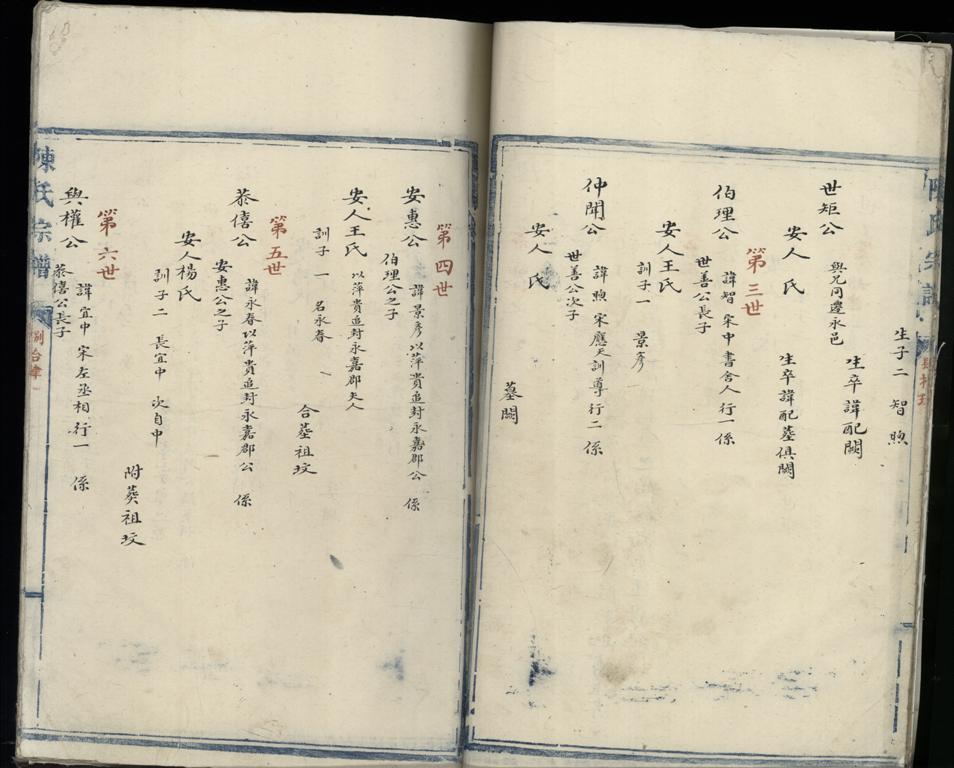 生子二 智 煦
世矩公 與兄同遷永邑
生卒諱配闕
安人 氏 生卒諱配墓俱闕
第三世
伯理公 諱智 宋中書舍人行一係
世善公長子
安人王氏
訓子一 景彥
仲聞公 諱煦 宋應天訓導行二係
世善公次子
安人 氏
墓闕
第四世
安惠公 諱景彥以萍貴追封永嘉郡公 係
伯理公之子
安人王氏 以萍貴追封永嘉郡夫人
訓子一 名永春
合墓祖坟
第五世
恭僖公 諱永春以萍貴追封永嘉郡公 係
安惠公之子
安人楊氏
訓子二 長宜中 次自中
附葬祖坟
第六世
與權公 諱宜中 宋左丞相行一 係
恭僖公長子
陳氏宗譜